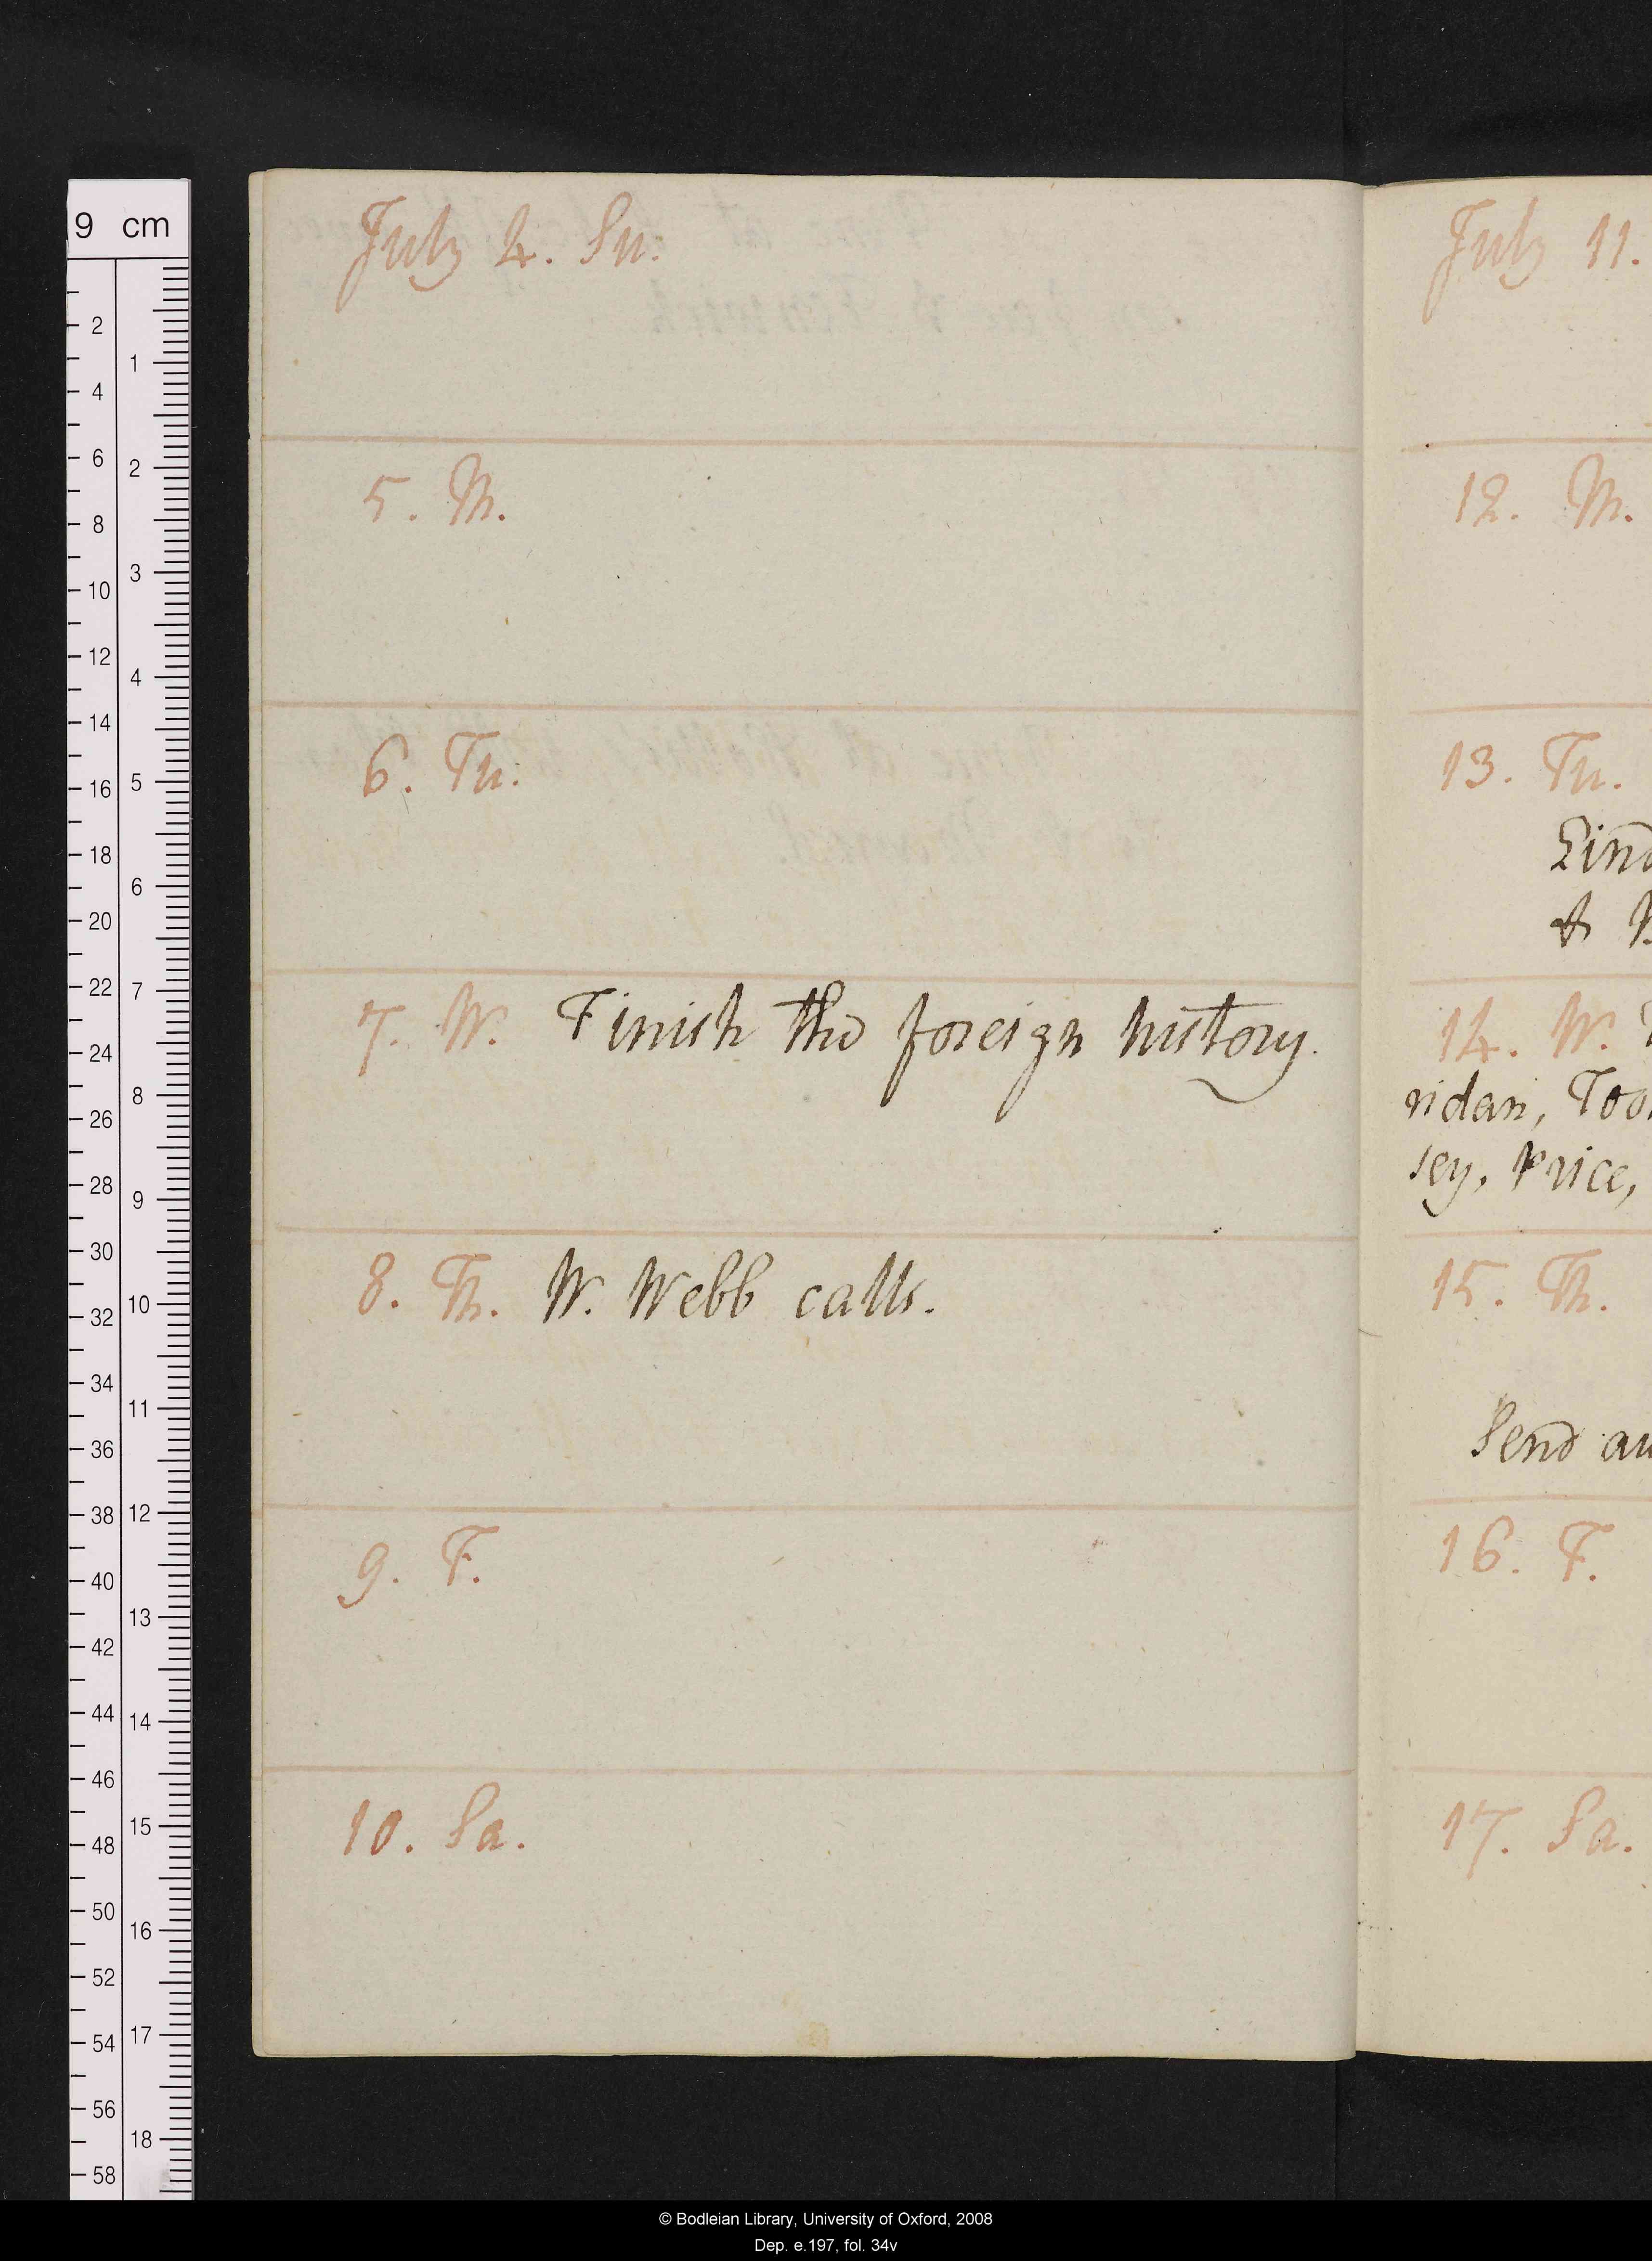 July 4. Su.
5. M.
6. Tu.
7. W. Finish the foreign history.
8. Th. W. Webb calls.
9. F.
10. Sa.
July 11.
12. M.
13. Tu.
Lind
& 
14. W.
ridan, Too
sey, Price,
15. Th.
Send au
16. F.
17. Sa.
9 cm
2
4
6
8
10
12
14
16
18
20
22
24
26
28
30
32
34
36
38
40
42
44
46
48
50
52
54
56
58
1
2
3
4
5
6
7
8
9
10
11
12
13
14
15
16
17
18
© Bodleian Library, University of Oxford, 2008
Dep. e.197, fol. 34v